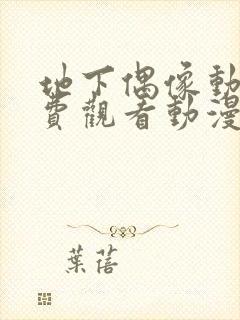 地下偶像動
費觀看動漫
葉蓓